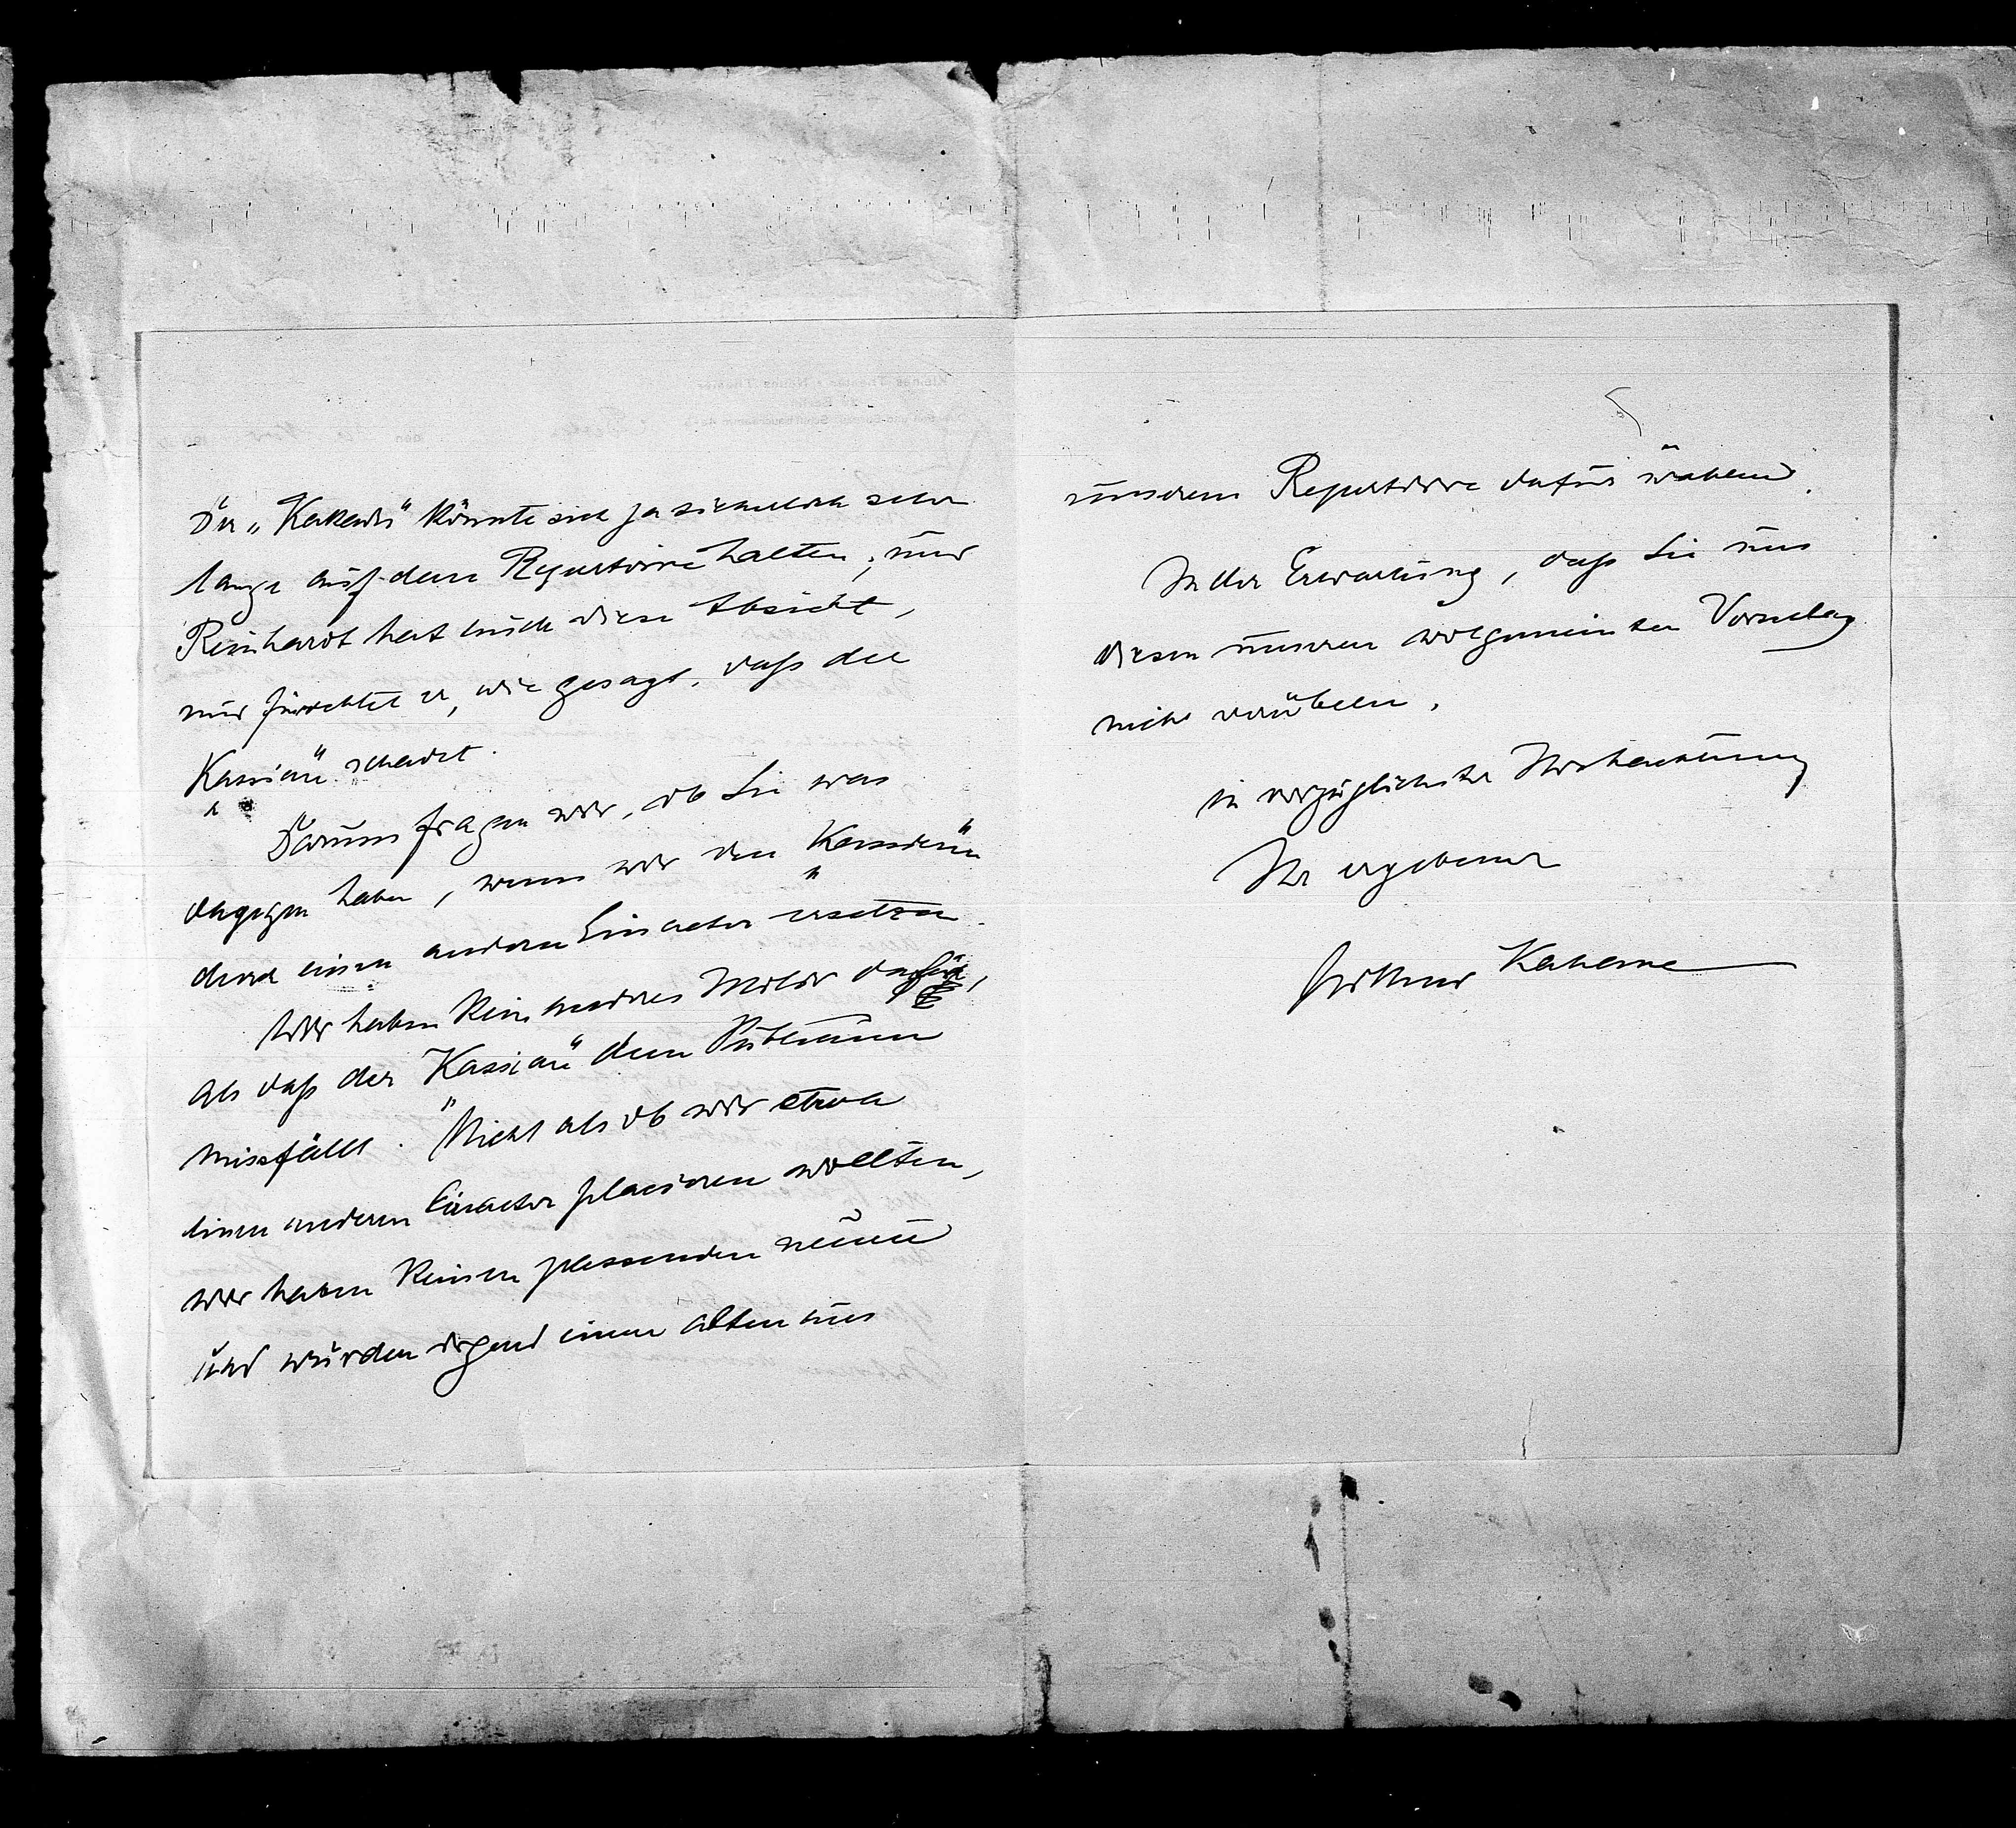 Der „Kakadu" könnte sich ja sicherlich sehr
lange auf dem Repertoire halten; und
Reinhardt hat auch diese Absicht,
nur fürchtet er, wie gesagt, daß der
„Kassian" schadet.
Darum fragen wir, ob Sie was
dagegen haben, wenn wir den „Kassian"
durch einen andern Einacter ersetzen.
Wir haben kein anderes Motiv dafür,
als daß der „Kassian" dem Publikum
missfällt. Nicht als ob wir etwa
einen anderen Einacter placieren wollten,
wir haben keinen passenden neuen
und würden irgend einen alten aus
unserem Repertoire dafür wählen.
In der Erwartung, daß Sie uns
diesen unseren wolgemeinten Vorschlag
nicht verübeln,
in vorzüglichster Hochachtung
Ihr ergebener
Arthur Kahane